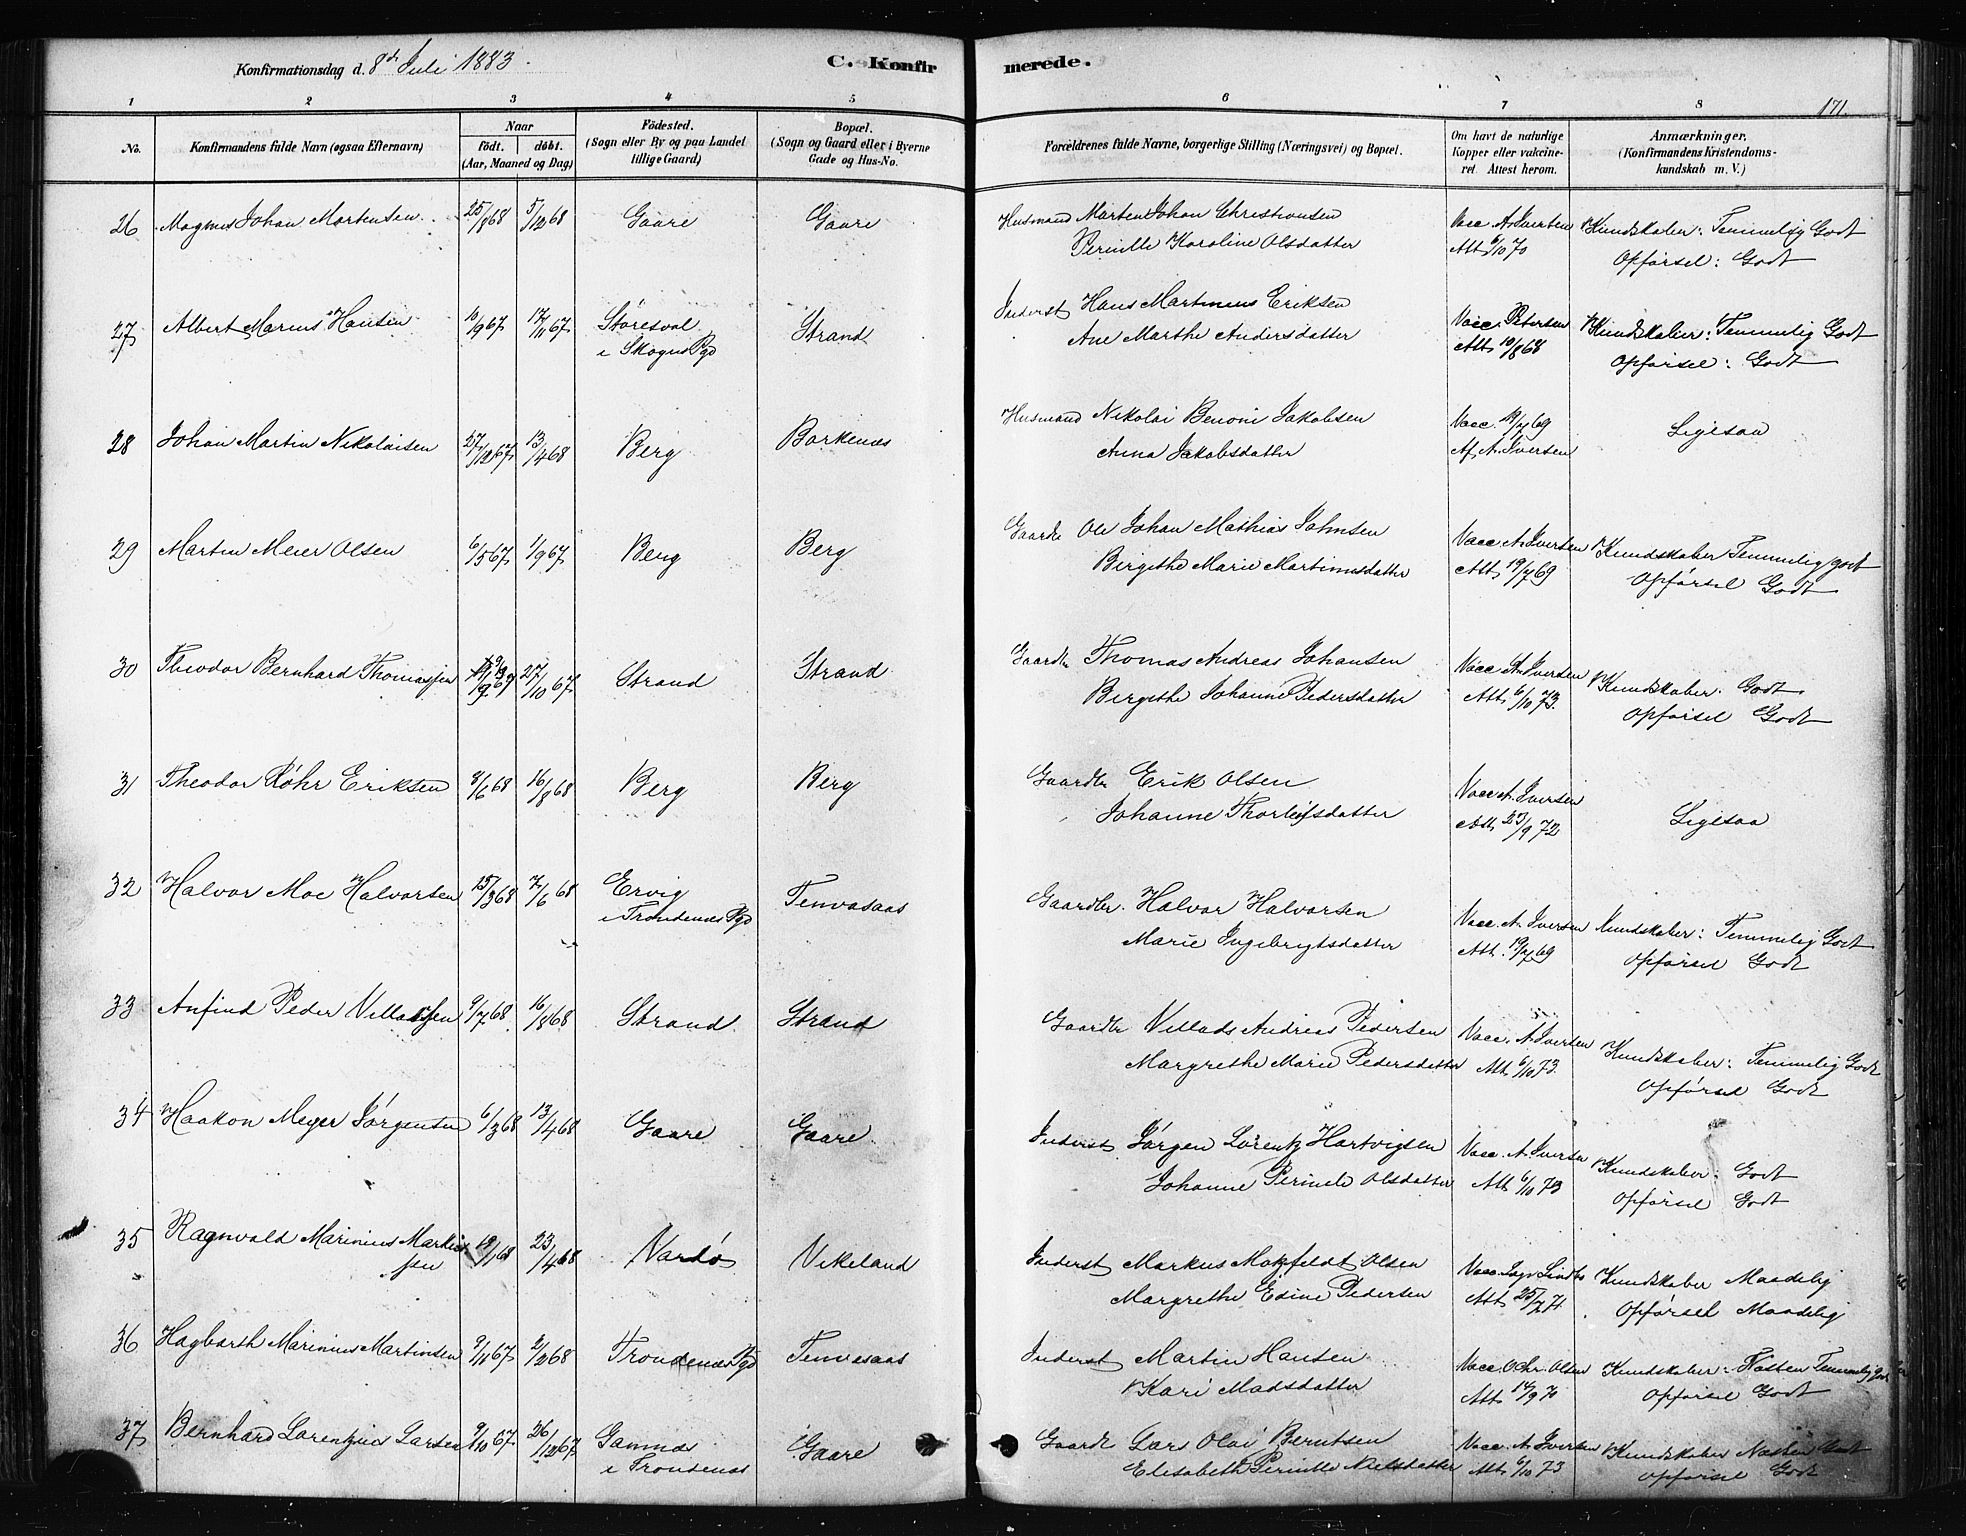 Konfirmationsdag d. 8de Juli 1883.
C. Konfirmerede.
171.
1 2 3 4 5 6 7 8
No.
Konfirmandens fulde Navn (ogsaa Efternavn)
Naar
födt. döbt.
(Aar, Maaned og Dag)
Födested.
(Sogn eller By og paa Landet
tillige Gaard)
Bopæl.
(Sogn og Gaard eller i Byerne
Gade og Hus-No.
Forældrenes fulde Navne, borgerlige Stilling (Næringsvei) og Bopæl.
Om havt de naturlige
Kopper eller vakcine-
ret. Attest herom.
Anmærkninger.
(Konfirmandens Kristendoms-
kundskab m. V.)
26 Magnus Johan Mortensen 25/8 68 5/12 68 Gaare Gaare Husmand Morten Johan Christiansen Vacc. A. Iversen Kundskaber: Temmelig Godt
Pernille Karoline Olsdatter Att. 6/10 70 Opførsel: Godt
27 Albert Marius Hansen 10/9 67 17/11 67 Støresvol Strand Inderst Hans Martinus Eriksen Vacc. Petersen Kundskaber: Temmelig Godt
i Skogns Pgd Ane Marthe Andersdatter Att. 10/8 68 Opførsel: Godt
28 Johan Martin Nikolaisen 27/12 67 13/4 68 Berg Borkenæs Husmand Nikolai Benoni Jakobsen Vacc. 19/7 69 Ligesaa
Anna Jakobsdatter Af A. Iversen
29 Martin Meier Olsen 6/5 67 1/9 67 Berg Berg Gaardb. Ole Johan Mathias Johnsen Vacc. A. Iversen Kundskaber Temmelig godt
Birgithe Marie Martinusdatter Att. 19/7 69 Opførsel Godt
30 Theodor Bernhard Thomassen 27/10 67 Strand Strand Gaardbr Thomas Andreas Johansen Vacc. A. Iversen Kundskaber. Godt
Birgithe Johanne Pedersdatter Att. 6/10 73. Opførsel Godt
31 Theodor Røhr Eriksen 8/6 68 16/8 68 Berg Berg Gaardbr Erik Olsen Vacc. A. Iversen Ligesaa
Johanne Thorleifsdatter Att. 23/9 72
32 Halvor Moe Halvorsen 15/3 68 7/6 68 Ervig Tenvasaas Gaardbr. Halvor Halvorsen Vacc. A. Iversen Kundskaber: Temmelig Godt
i Trondenæs Pgd Marie Ingebrigtsdatter Att. 19/7 69 Opførsel Godt
33 Anfind Peder Villadsen 9/7 68 16/8 68 Strand Strand Gaardbr Villads Andreas Pedersen Vacc. A. Iversen Kundskaber: Temmelig Godt
Margrethe Marie Pedersdatter Att. 6/10 73. Opførsel Godt
34 Haakon Meyer Jørgensen 6/3 68 13/4 68 Gaare Gaare Inderst Jørgen Lorentz Hartvigsen Vacc. A. Iversen Kundskaber: Godt
Johanne Pernele Olsdatter Att 6/10 73 Opførsel Godt
35 Ragnvald Marinius Markus 19/1 68 23/4 68 Vardø Vikeland Inderst Markus Motzfeldt Olsen Vacc. Kundskaber Maadelig
sen Margrethe Edine Pedersen Att. 25/7 71. Opførsel Maadelig
36 Hagbarth Marinius Martinsen 9/11 67 2/2 68 Trondenæs Pgd Tenvasaas Inderst Martin Hansen Vacc. O Chr. Olsen Kundskaber: Næsten Temmelig godt
Kari Madsdatter Att. 14/9 70 Opførsel Godt
37 Bernhard Lorentzius Larsen 9/10 67 26/12 67 Gamnæs Gaare Gaardb Lars Olai Berntsen Vacc. A. Iversen Kundskaber Næsten Godt
i Trondenæs Elisabeth Pernille Nielsdatter Att. 6/10 73 Opførsel Godt